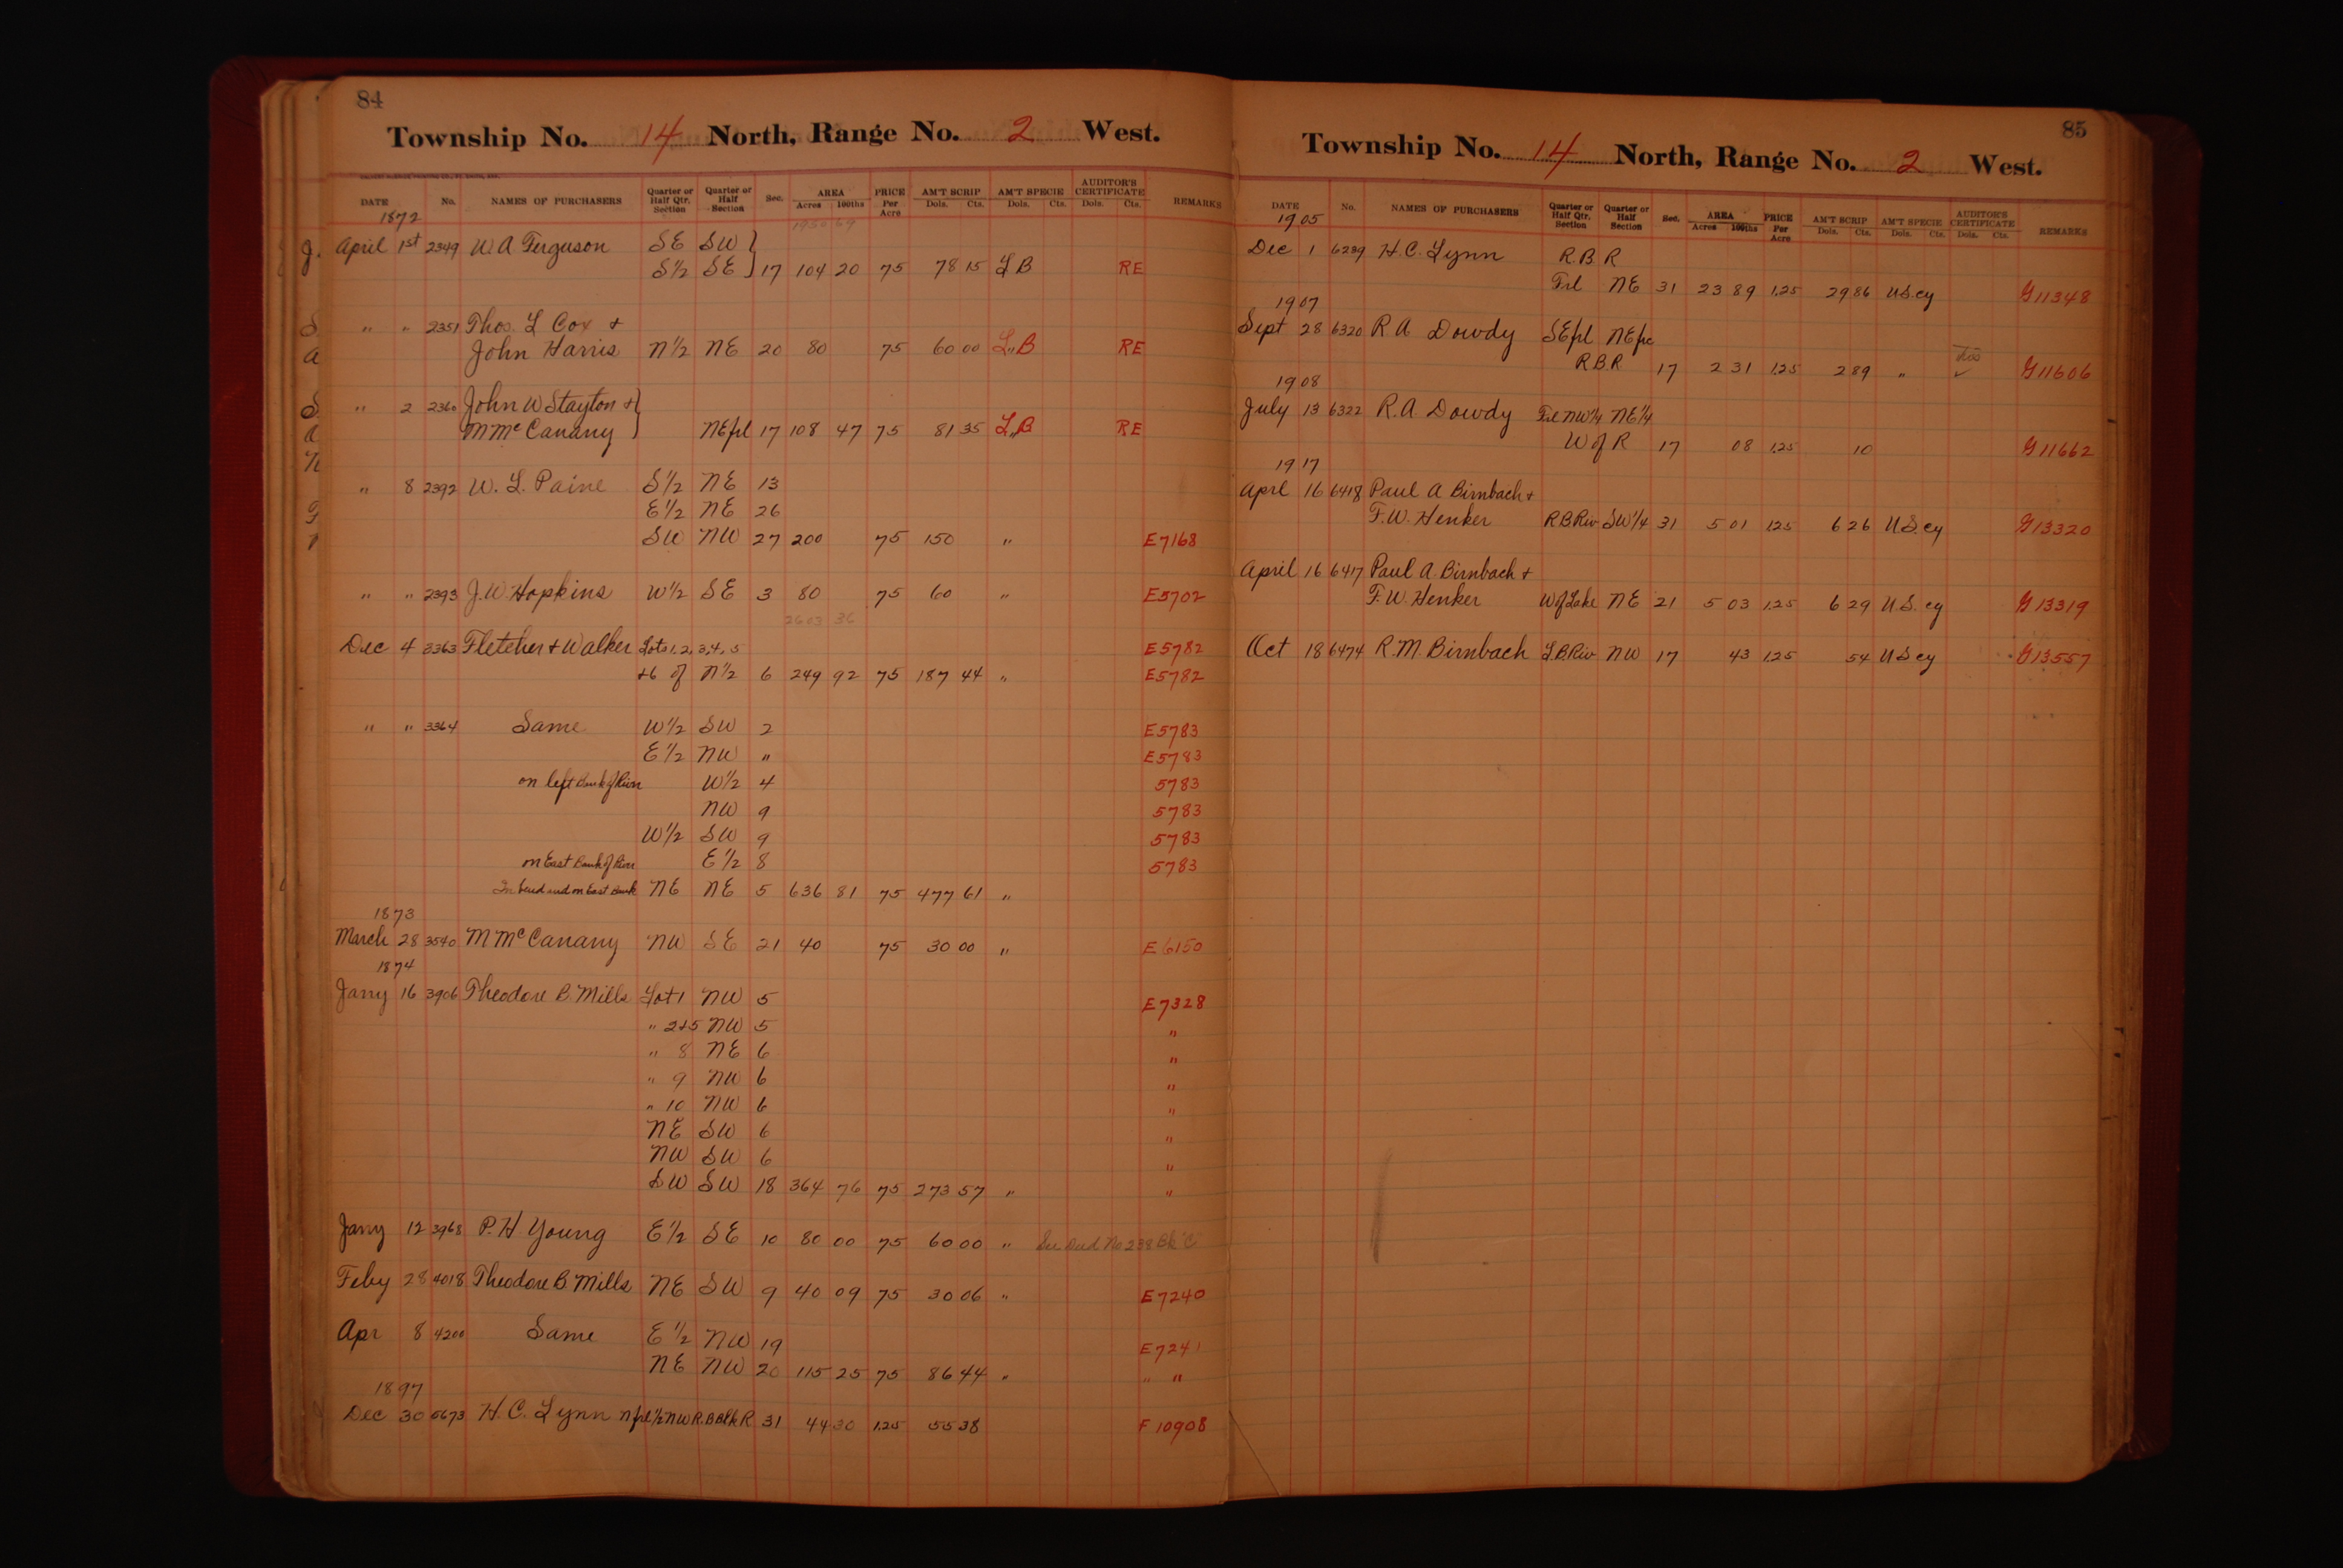 84
Township No. 14 North, Range No. 2 West.
DATE No. NAMES OF PURCHASERS Quarter or Half Qtr. Section Quarter or Half Section Sec. AREA Acres 100ths PRICE Per Acre AM'T SCRIP Dols. Cts. AM'T SPECIE Dols. Cts. AUDITOR'S CERTIFICATE Dols. Cts. REMARKS
1872
April 1st 2349 W. A Ferguson SE SW
S½ SE 17 104 20 75 78 15 L B RE
" " 2351 Thos. L Cox +
John Harris N½ NE 20 80 75 60 00 L,,B RE
" 2 2360 John W Stayton +
M McCanany NEfrl 17 108 47 75 81 35 L,,B RE
" 8 2392 W. L. Paine S½ NE 13
E½ NE 26
SW NW 27 200 75 150 " E7168
" " 2393 J. W. Hopkins W½ SE 3 80 75 60 " E5702
2603 36
Dec 4 3363 Fletcher + Walker Lots 1, 2, 3, 4, 5 E5782
+6 of N½ 6 249 92 75 187 44 " E5782
" " 3364 Same W½ SW 2 E5783
E½ NW " E5783
on left Bank of River W½ 4 5783
NW 9 5783
W½ SW 9 5783
on East Bank of River E½ 8 5783
In bend and on East Bank NE NE 5 636 81 75 477 61 "
1873
March 28 3540 M McCanany NW SE 21 40 75 30 00 " E6150
1874
Jany 16 3906 Theodore B. Mills Lot 1 NW 5 E7328
" 2+5 NW 5 "
" 8 NE 6 "
" 9 NW 6 "
" 10 NW 6 "
NE SW 6 "
NW SW 6 "
SW SW 18 364 76 75 273 57 " "
Jany 12 3968 P. H Young E½ SE 10 80 00 75 60 00 " See Deed No 238 Bk C
Feby 28 4018 Theodore B. Mills NE SW 9 40 09 75 30 06 " E7240
Apr 8 4200 Same E½ NW 19 E7241
NE NW 20 115 25 75 86 44 " " "
1897
Dec 30 5673 H. C. Lynn Nfrl½ NW R. B Blk R 31 44 30 1.25 55 38 F 10908
85
Township No. 14 North, Range No. 2 West.
DATE No. NAMES OF PURCHASERS Quarter or Half Qtr. Section Quarter or Half Section Sec. AREA Acres 100ths PRICE Per Acre AM'T SCRIP Dols. Cts. AM'T SPECIE Dols. Cts. AUDITOR'S CERTIFICATE Dols. Cts. REMARKS
1905
Dec 1 6239 H. C. Lynn R. B. R
Frl NE 31 23 89 1.25 29 86 U.S.cy G11348
1907
Sept 28 6320 R A Dowdy SEfrl NEfrc
R.B.R 17 2 31 1.25 2 89 " G11606
1908
July 13 6322 R. A. Dowdy Frl NW¼ NE¼
W of R 17 08 1.25 10 G11662
1917
Aprl 16 6418 Paul A Birnbach +
F. W. Henker R B Riv SW¼ 31 5 01 1.25 6 26 U.S.cy G13320
April 16 6417 Paul A. Birnbach +
F. W. Henker W of Lake NE 21 5 03 1.25 6 29 U.S. cy G13319
Oct 18 6474 R. M. Birnbach L B. Riv NW 17 43 1.25 54 U S cy G13557